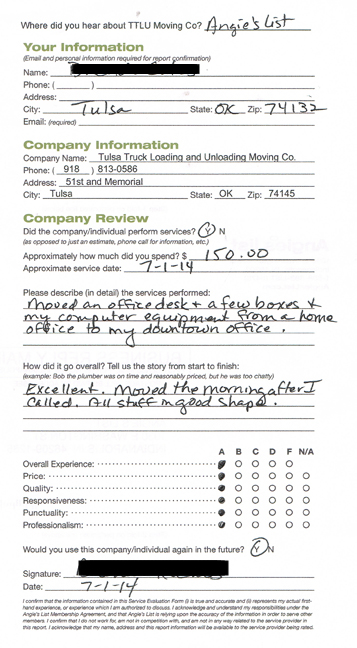 Where did you hear about TTLU Moving Co? Angie's List
Your Information
(Email and personal information required for report confirmation)
Name:
Phone: ( )
Address:
City: Tulsa State: OK Zip: 74132
Email: (required)
Company Information
Company Name: Tulsa Truck Loading and Unloading Moving Co.
Phone: ( 918 ) 813-0586
Address: 51st and Memorial
City: Tulsa State: OK Zip: 74145
Company Review
Did the company/individual perform services? Y N
(as opposed to just an estimate, phone call for information, etc.)
Approximately how much did you spend? $ 150.00
Approximate service date: 7-1-14
Please describe (in detail) the services performed:
Moved an office desk + a few boxes +
my computer equipment from a home
office to my downtown office.
How did it go overall? Tell us the story from start to finish:
(example: Bob the plumber was on time and reasonably priced, but he was too chatty)
Excellent. Moved the morning after I
called. All stuff in good shape.
A B C D F N/A
Overall Experience:
Price:
Quality:
Responsiveness:
Punctuality:
Professionalism:
Would you use this company/individual again in the future? Y N
Signature:
Date: 7-1-14
I confirm that the information contained in this Service Evaluation Form (i) is true and accurate and (ii) represents my actual first-
hand experience, or experience which I am authorized to discuss. I acknowledge and understand my responsibilities under the
Angie's List Membership Agreement, and that Angie's List is relying upon the accuracy of the information in order to serve other
members. I confirm that I do not work for, am not in competition with, and am not in any way related to the service provider in
this report. I acknowledge that my name, address and this report information will be available to the service provider being rated.